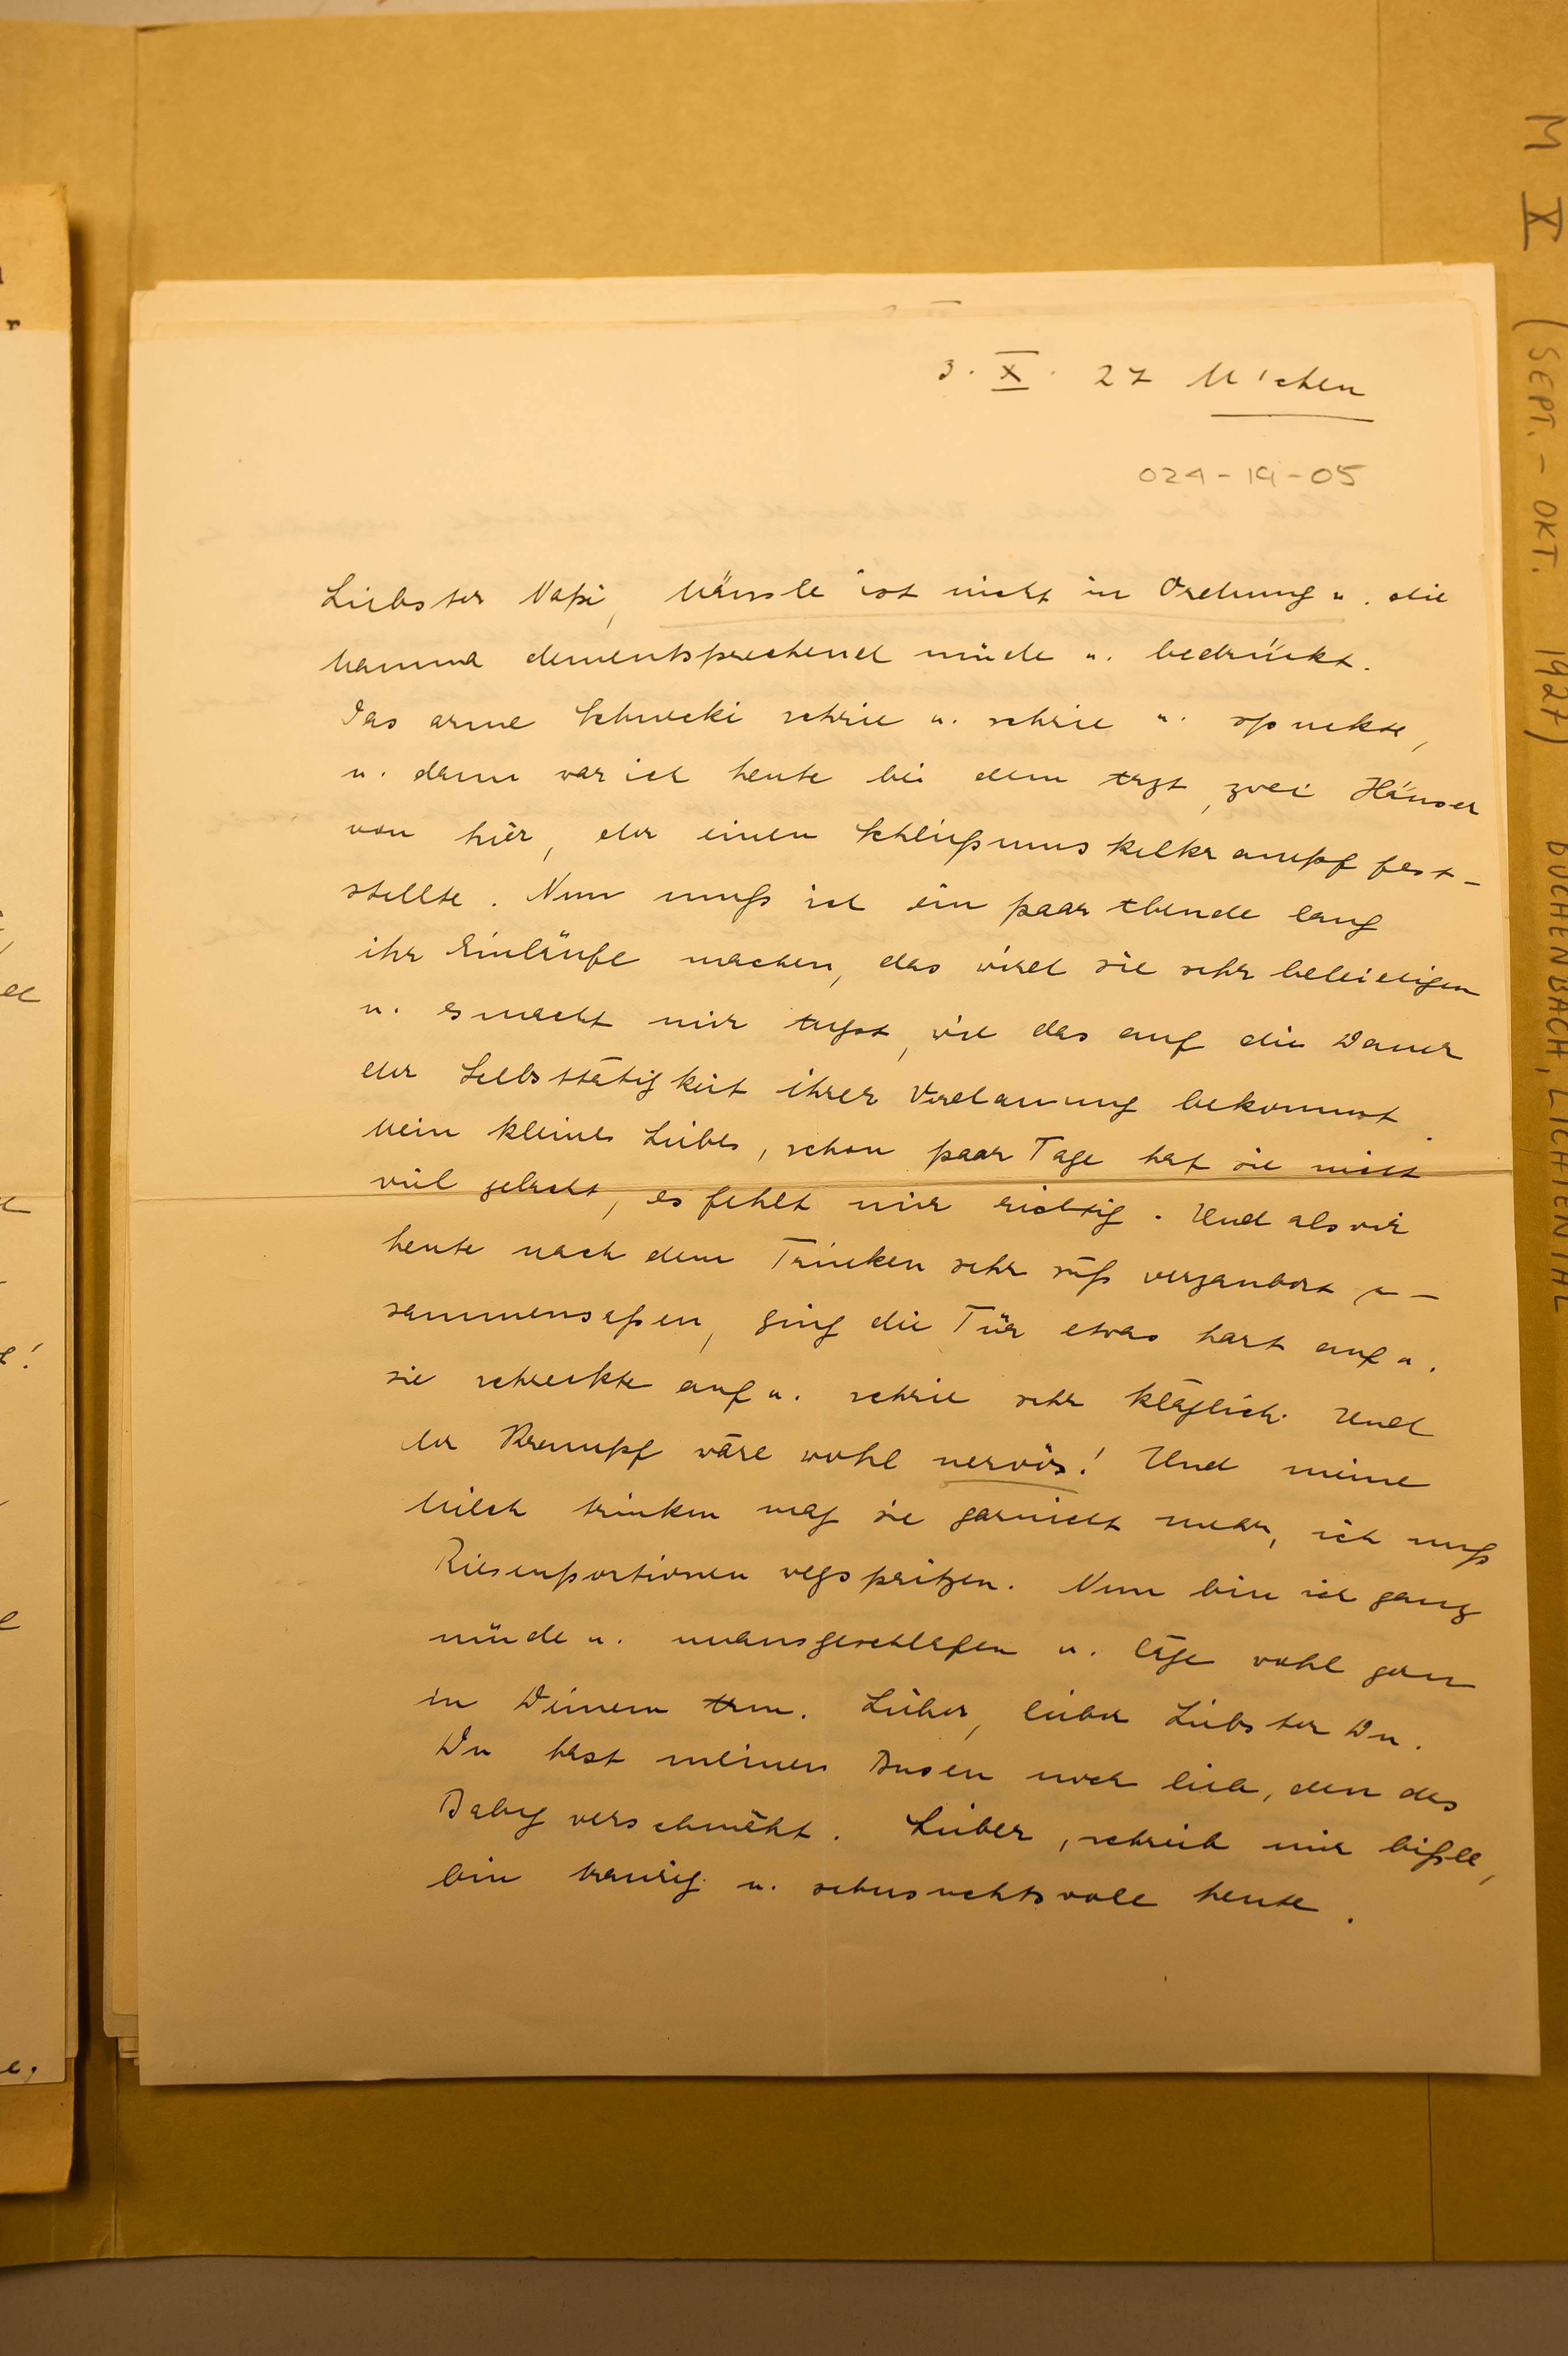 M X (SEPT. - OKT. 1927) BUCHENBACH, LICHTENTAL
3. X. 27 M'chen
024-19-05
Liebster Napi, Mäusle ist nicht in Ordnung u. die
Mamma dementsprechend müde u. bedrückt.
Das arme Schnecki schrie u. schrie u. spuckte,
u. dann war ich heute bei dem Arzt, zwei Häuser
von hier, der einen Schließmuskelkrampf fest-
stellte. Nun muß ich ein paar Abende lang
ihr Einläufe machen, das wird sie sehr beleidigen
u. es macht mir Angst, wie das auf die Dauer
der Selbsttätigkeit ihrer Verdauung bekommt.
Mein kleines Liebes, schon paar Tage hat sie nicht
viel gelacht, es fehlt mir richtig. Und als wir
heute nach dem Trinken sehr süß verzaubert zu-
sammensaßen, ging die Tür etwas hart auf u.
sie schreckte auf u. schrie sehr kläglich. Und
der Krampf wäre wohl nervös! Und meine
Milch trinken mag sie garnicht mehr, ich muß
Riesenportionen wegspritzen. Nun bin ich ganz
müde u. unausgeschlafen u. läge wohl gern
in Deinem Arm. Lieber, lieber Liebster Du.
Du hast meinen Busen noch lieb, den das
Baby verschmäht. Lieber, schreib mir bißle,
bin traurig u. sehnsuchtsvoll heute.